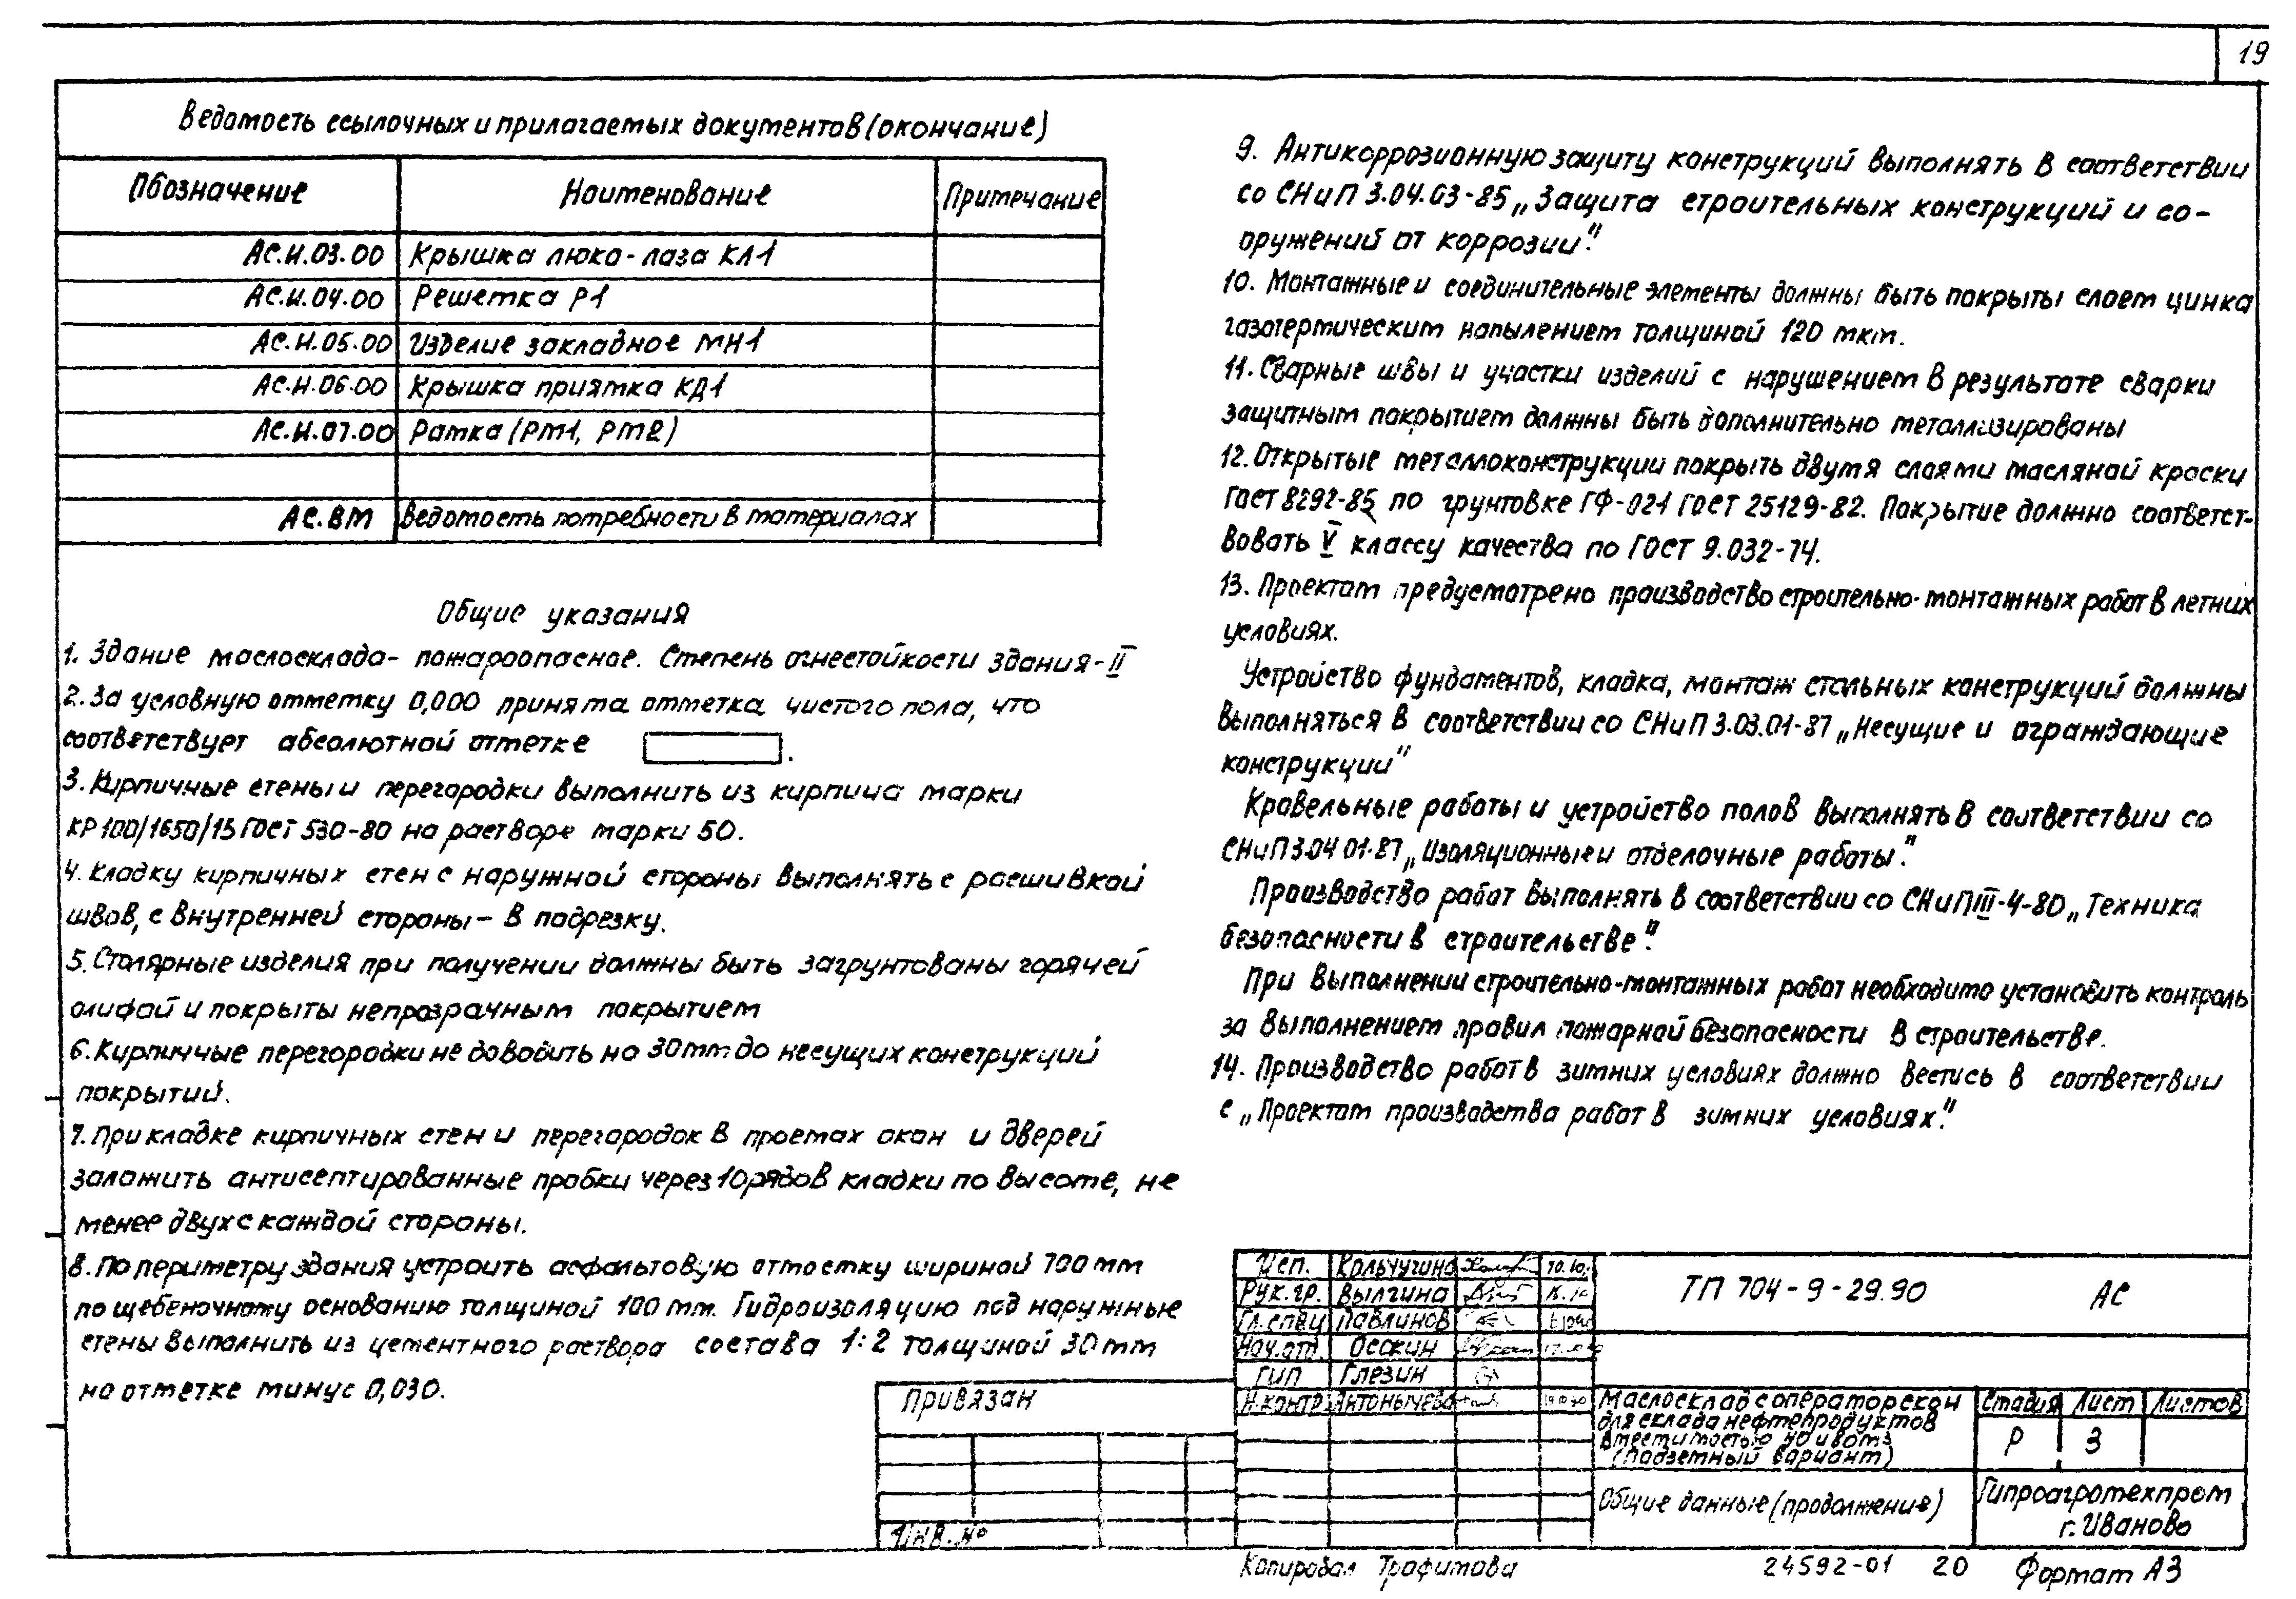 19
Ведомость ссылочных и прилагаемых документов (окончание)
Обозначение Наименование Примечание
АС.И.03.00 Крышка люка-лаза КЛ1
АС.И.04.00 Решетка Р1
АС.И.05.00 Изделие закладное МН1
АС.И.06.00 Крышка приямка КД1
АС.И.07.00 Рамка (РМ1, РМ2)
АС.ВМ Ведомость потребности в материалах
Общие указания
1. Здание маслосклада - пожароопасное. Степень огнестойкости здания - II
2. За условную отметку 0,000 принята отметка чистого пола, что
соответствует абсолютной отметке .
3. Кирпичные стены и перегородки выполнить из кирпича марки
КР 100/1650/15 ГОСТ 530-80 на растворе марки 50.
4. Кладку кирпичных стен с наружной стороны выполнять с расшивкой
швов, с внутренней стороны - в подрезку.
5. Столярные изделия при получении должны быть загрунтованы горячей
олифой и покрыты непрозрачным покрытием
6. Кирпичные перегородки не доводить на 30 мм до несущих конструкций
покрытий.
7. При кладке кирпичных стен и перегородок в проемах окон и дверей
заложить антисептированные пробки через 10 рядов кладки по высоте, не
менее двух с каждой стороны.
8. По периметру здания устроить асфальтовую отмостку шириной 700 мм
по щебеночному основанию толщиной 100 мм. Гидроизоляцию под наружные
стены выполнить из цементного раствора состава 1:2 толщиной 30 мм
на отметке минус 0,030.
9. Антикоррозионную защиту конструкций выполнять в соответствии
со СНиП 3.04.03-85 „Защита строительных конструкций и со-
оружений от коррозии".
10. Монтажные и соединительные элементы должны быть покрыты слоем цинка
газотермическим напылением толщиной 120 мкм.
11. Сварные швы и участки изделий с нарушением в результате сварки
защитным покрытием должны быть дополнительно металлизированы
12. Открытые металлоконструкции покрыть двумя слоями масляной краски
ГОСТ 8292-85 по грунтовке ГФ-021 ГОСТ 25129-82. Покрытие должно соответст-
вовать V классу качества по ГОСТ 9.032-74.
13. Проектом предусмотрено производство строительно-монтажных работ в летних
условиях.
Устройство фундаментов, кладка, монтаж стальных конструкций должны
выполняться в соответствии со СНиП 3.03.01-87 „Несущие и ограждающие
конструкции"
Кровельные работы и устройство полов выполнять в соответствии со
СНиП 3.04 01-87 „Изоляционные и отделочные работы".
Производство работ выполнять в соответствии со СНиП III-4-80 „Техника
безопасности в строительстве".
При выполнении строительно-монтажных работ необходимо установить контроль
за выполнением правил пожарной безопасности в строительстве.
14. Производство работ в зимних условиях должно вестись в соответствии
с „Проектом производства работ в зимних условиях".
Привязан
Инв. №
Исп. Кольчугина
Рук. гр. Вылгина
Гл. спец Павлинов
Нач. отд. Оескин
ГИП Глезин
Н. контр Антонычева
ТП 704-9-29.90 АС
Маслосклад с операторской
для склада нефтепродуктов
вместимостью
(подземный вариант)
Стадия Лист Листов
Р 3
Общие данные (продолжение)
Гипроагротехпром
г. Иваново
Копировал Трофимова 24592-01 20 Формат А3